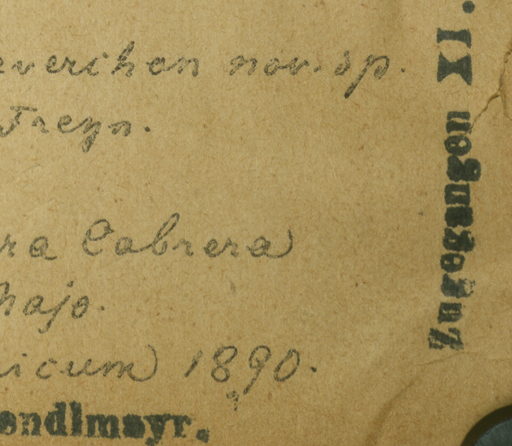 everchen nov. sp.
Freyn.
ra Cabrera
hajo.
icum) 1890.
endlmayr.
Zugegangen XI.